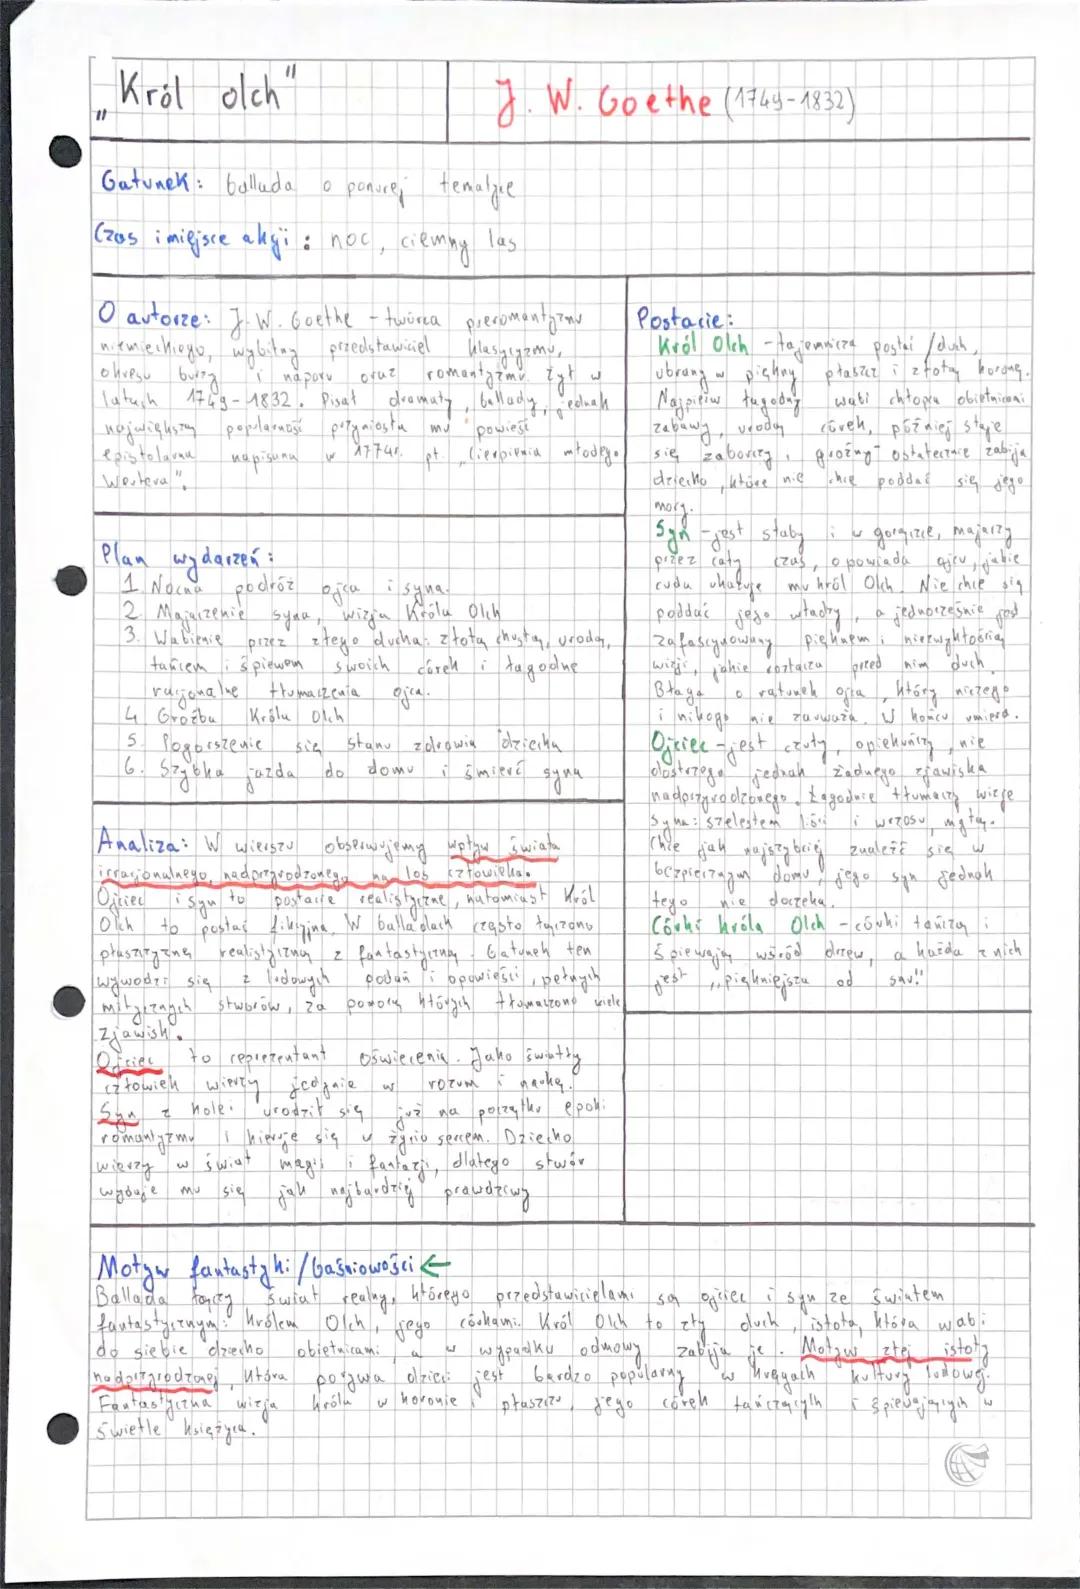 „Król olch"
J. W. Goethe (1749-1832)
Gatunek: ballada o ponurej tematyce
Czas i miejsce akcji: noc, ciemny las
O autorze: J. W. Goethe - twórca preromantyzmu
niemieckiego, wybitny przedstawiciel klasycyzmu,
okresu burzy i naporu oraz romantyzmu. Żył w
latach 1749-1832. Pisał dramaty, ballady, jednak
największą popularność przyniosła mu powieść
epistolarna napisana w 1774r. pt. „Cierpienia młodego
Wertera".
Plan wydarzeń:
1. Nocna podróż ojca i syna.
2. Majaczenie syna, wizja Króla Olch
3. Wabienie przez złego ducha: złotą chustą, urodą,
tańcem i śpiewem swoich córek i łagodne
racjonalne tłumaczenia ojca.
4. Groźba Króla Olch
5. Pogorszenie się stanu zdrowia dziecka
6. Szybka jazda do domu i śmierć syna
Analiza: W wierszu obserwujemy wpływ świata
irracjonalnego, nadprzyrodzonego na los człowieka.
Ojciec i syn to postacie realistyczne, natomiast Król
Olch to postać fikcyjna. W balladach często łączono
płaszczyznę realistyczną z fantastyczną. Gatunek ten
wywodzi się z ludowych podań i opowieści, pełnych
mitycznych stworów, za pomocą których tłumaczono wiele
zjawisk.
Ojciec to reprezentant Oświecenia. Jako światły
człowiek wierzy jedynie w rozum i naukę.
Syn z kolei urodził się już na początku epoki
romantyzmu i kieruje się w życiu sercem. Dziecko
wierzy w świat magii i fantazji, dlatego stwór
wydaje mu się jak najbardziej prawdziwy
Postacie:
Król Olch - tajemnicza postać / duch,
ubrany w piękny płaszcz i złotą koronę.
Najpierw łagodny wabi chłopca obietnicami
zabawy, urodą córek, później staje
się zaborczy, groźny - ostatecznie zabija
dziecko, które nie chce poddać się jego
mocy.
Syn - jest słaby i w gorączce, majaczy
przez cały czas, opowiada ojcu, jakie
cuda ukazuje mu król Olch. Nie chce się
poddać jego władzy, a jednocześnie jest
zafascynowany pięknem i niezwykłością
wizji, jakie roztacza przed nim duch.
Błaga o ratunek ojca, który niczego
i nikogo nie zauważa. W końcu umiera.
Ojciec - jest czuły, opiekuńczy, nie
dostrzega jednak żadnego zjawiska
nadprzyrodzonego. Łagodnie tłumaczy wizje
syna: szelestem liści i wrzosu, mgłą.
Chce jak najszybciej znaleźć się w
bezpiecznym domu, jego syn jednak
tego nie doczeka.
Córki króla Olch - córki tańczą i
śpiewają wśród drzew, a każda z nich
jest „piękniejsza od snu."
Motyw fantastyki/baśniowości ←
Ballada łączy świat realny, którego przedstawicielami są ojciec i syn ze światem
fantastycznym: królem Olch, jego córkami. Król Olch to zły duch, istota, która wabi
do siebie dziecko obietnicami, a w wypadku odmowy zabija je. Motyw złej istoty
nadprzyrodzonej, która porywa dzieci jest bardzo popularny w kręgach kultury ludowej.
Fantastyczna wizja króla w koronie i płaszczu, jego córek tańczących i śpiewających w
świetle księżyca.